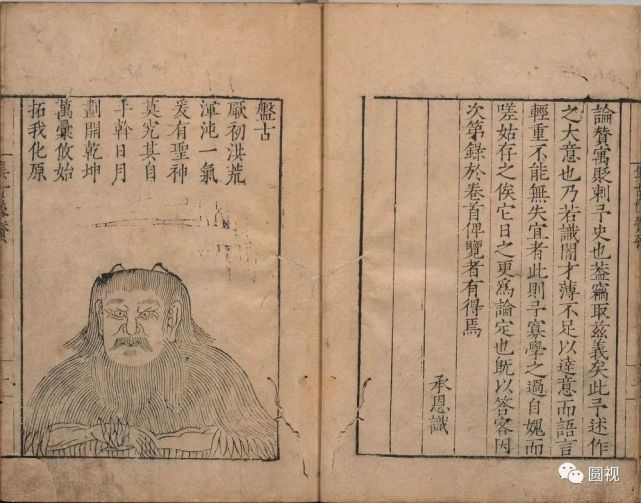 論贊寓貶刺予史也葢竊取兹義矣此予述作
之大意也乃若識闇才薄不足以逹意而語言
輕重不能無失宜者此則予寡學之過自媿而
嗟姑存之俟它日之更爲論定也旣以答客因
次第錄於卷首俾覽者有得焉
承恩識
盤古
厥初洪荒
渾沌一氣
爰有聖神
莫究其自
手斡日月
劃開乾坤
萬彙攸始
拓我化原
集古像贊
圆视